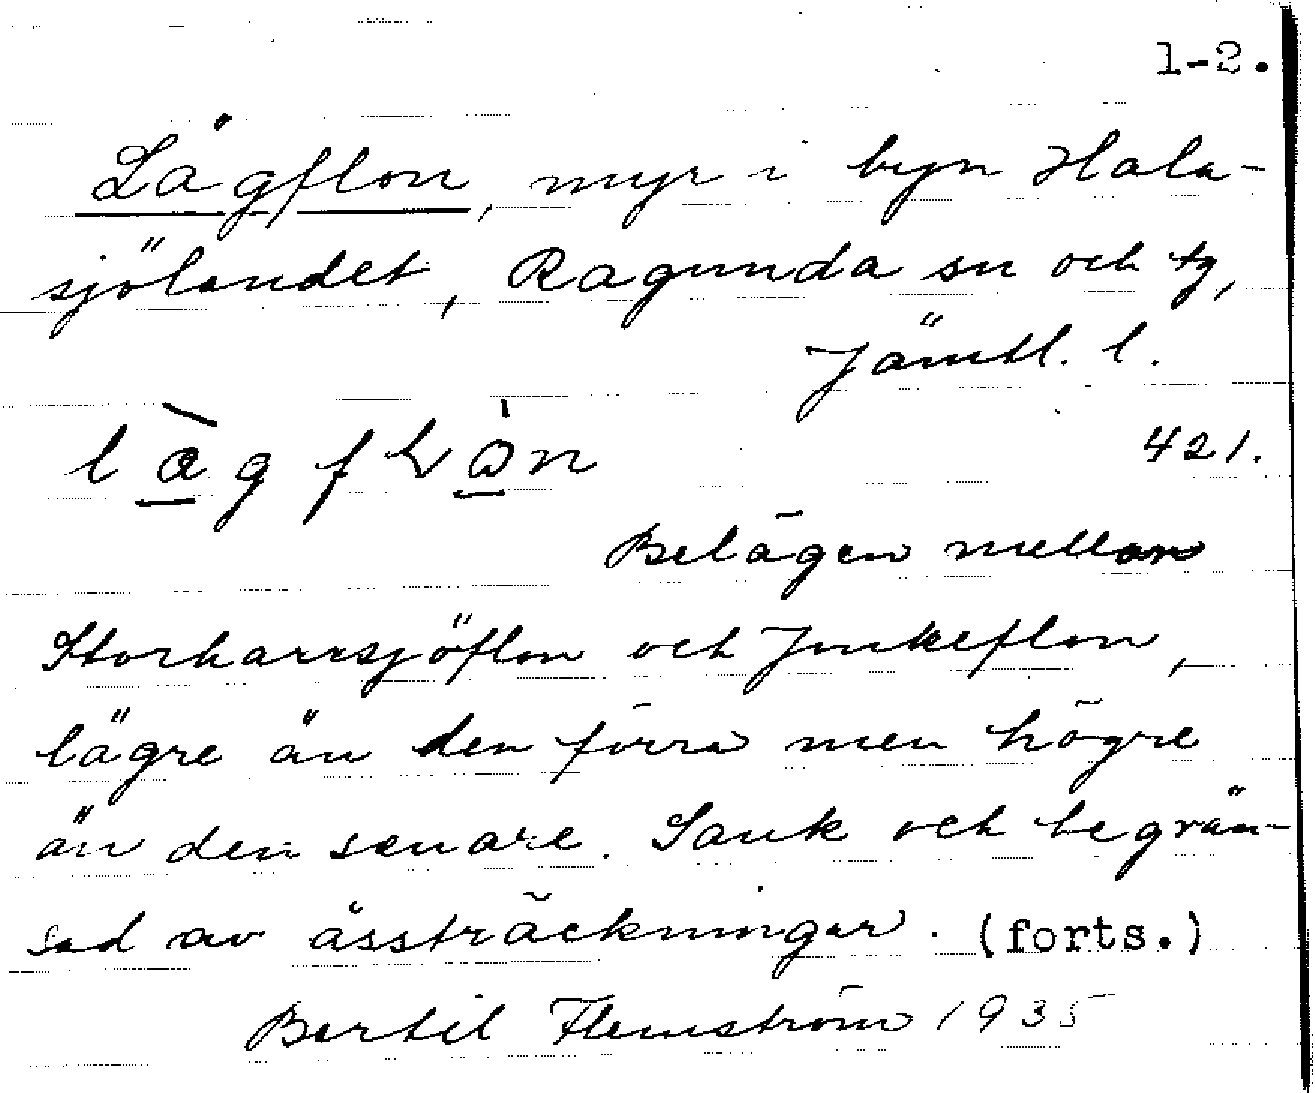 1-2.
Lågflon, myr i byn Hala-
sjölandet, Ragunda sn och tg,
Jämtl. l.
421.
Belägen mellan
Storharrsjöflon och Jonkeflon,
lägre än den förra men högre
än den senare. Sank och begrän-
sad av åssträckningar. (forts.)
Bertil Flemström 1935